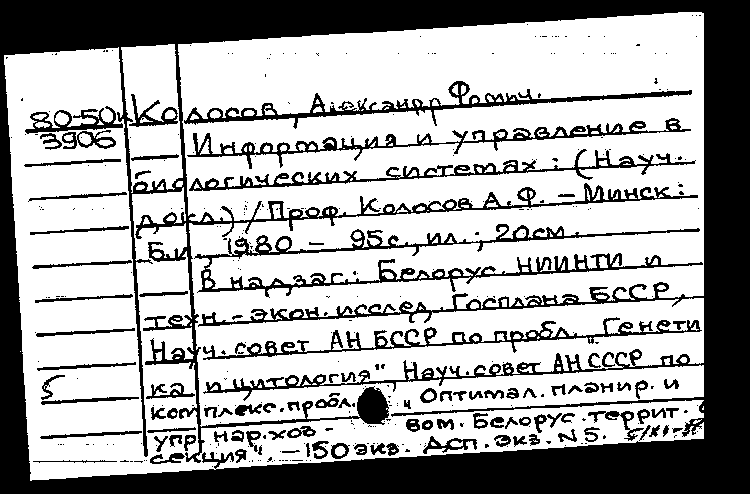 80-50к Колосов, Александр Фомич.
3906 Информация и управление в
биологических системах: (Науч.
докл.) / Проф. Колосов А.Ф. – Минск:
Б.и., 1980. – 95с., ил.; 20см.
В надзаг.: Белорус. НИИНТИ и
техн.-экон. исслед. Госплана БССР,
Науч. совет АН БССР по пробл. „Генети
5 ка и цитология", Науч. совет АН СССР по
комплекс. пробл. „Оптимал. планир. и
упр. нар. хоз-вом. Белорус. террит.
секция". – 150 экз. Дсп. Экз. N5.